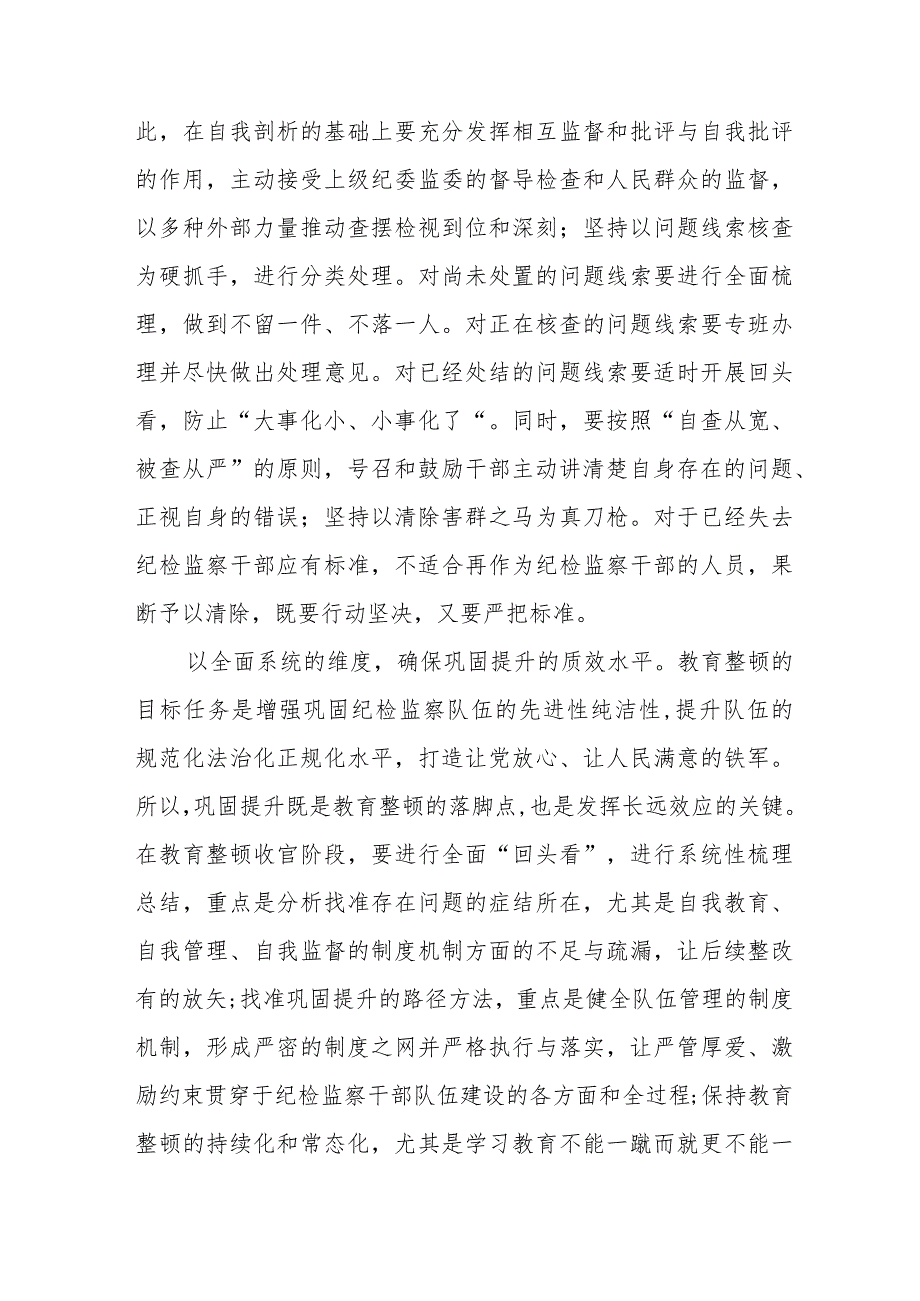 此，在自我剖析的基础上要充分发挥相互监督和批评与自我批评
的作用，主动接受上级纪委监委的督导检查和人民群众的监督，
以多种外部力量推动查摆检视到位和深刻；坚持以问题线索核查
为硬抓手，进行分类处理。对尚未处置的问题线索要进行全面梳
理，做到不留一件、不落一人。对正在核查的问题线索要专班办
理并尽快做出处理意见。对已经处结的问题线索要适时开展回头
看，防止“大事化小、小事化了“。同时，要按照“自查从宽、
被查从严”的原则，号召和鼓励干部主动讲清楚自身存在的问题、
正视自身的错误；坚持以清除害群之马为真刀枪。对于已经失去
纪检监察干部应有标准，不适合再作为纪检监察干部的人员，果
断予以清除，既要行动坚决，又要严把标准。
以全面系统的维度，确保巩固提升的质效水平。教育整顿的
目标任务是增强巩固纪检监察队伍的先进性纯洁性,提升队伍的
规范化法治化正规化水平，打造让党放心、让人民满意的铁军。
所以,巩固提升既是教育整顿的落脚点,也是发挥长远效应的关键。
在教育整顿收官阶段，要进行全面“回头看”，进行系统性梳理
总结，重点是分析找准存在问题的症结所在，尤其是自我教育、
自我管理、自我监督的制度机制方面的不足与疏漏，让后续整改
有的放矢;找准巩固提升的路径方法，重点是健全队伍管理的制度
机制，形成严密的制度之网并严格执行与落实，让严管厚爱、激
励约束贯穿于纪检监察干部队伍建设的各方面和全过程;保持教育
整顿的持续化和常态化，尤其是学习教育不能一蹴而就更不能一